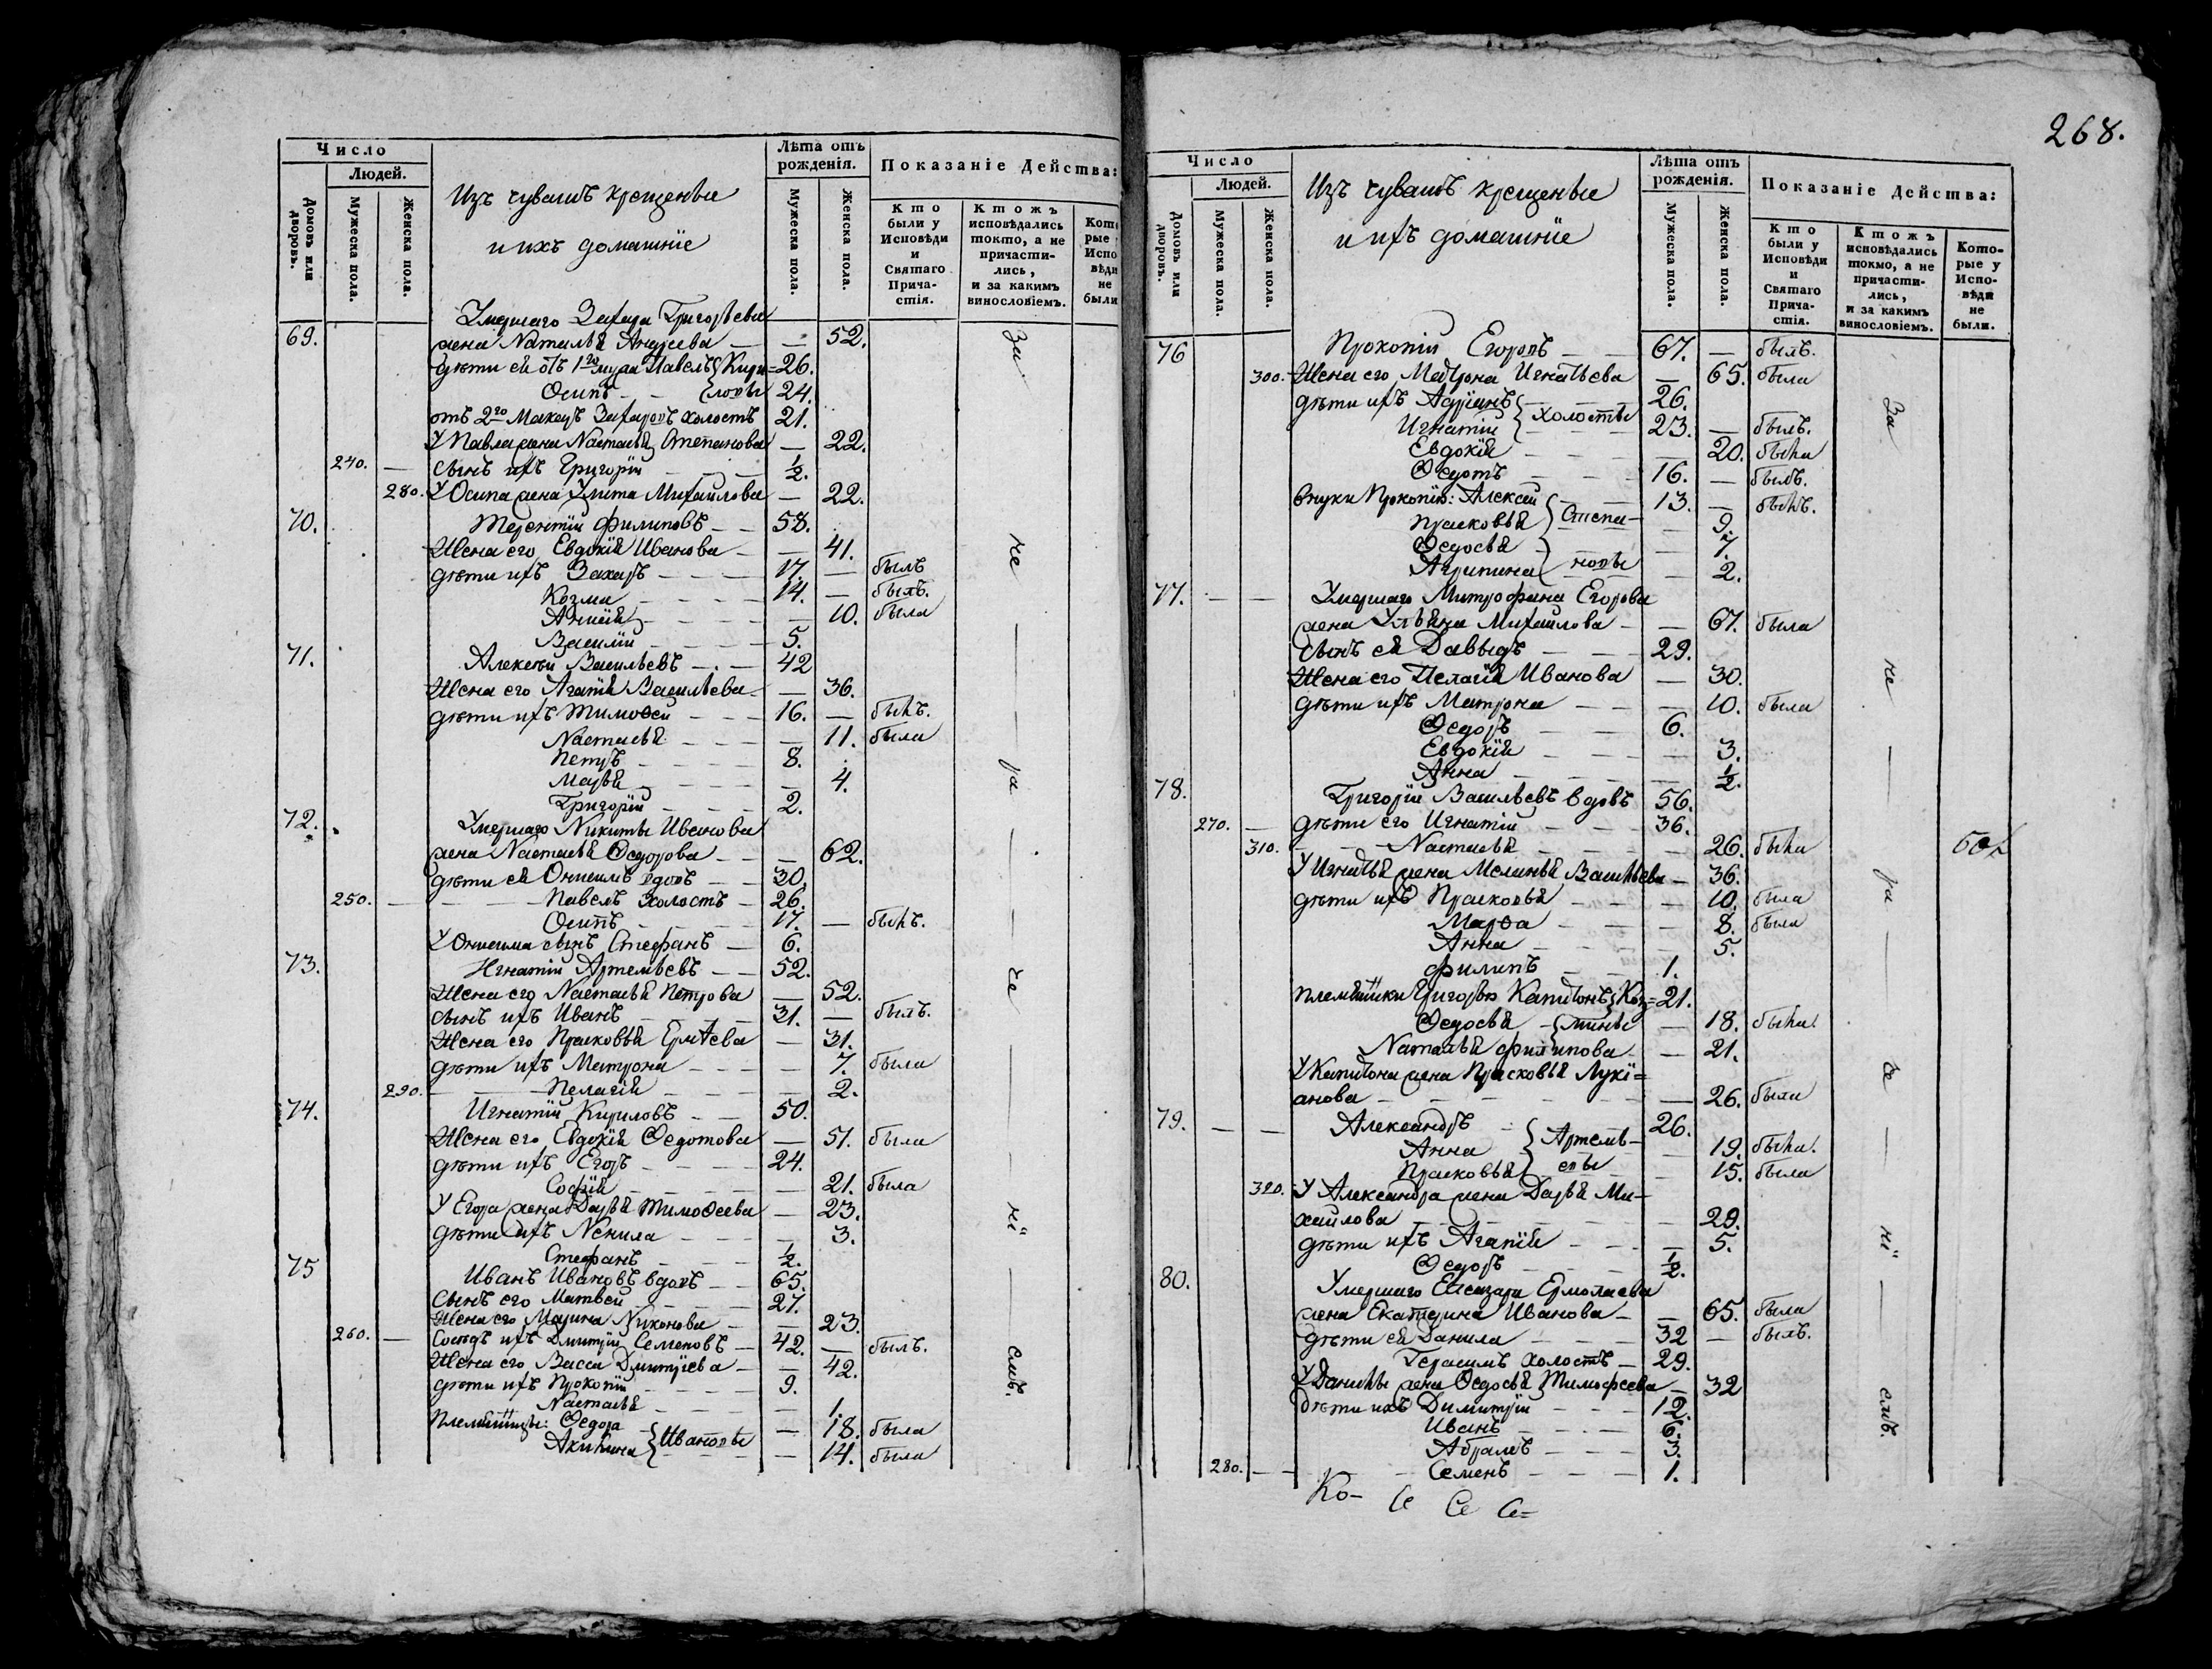 Число
Людей.
Домовъ или дворовъ.
Мужеска пола.
Женска пола.
Изъ чувашъ крещеные
и ихъ домашніе
Лѣта отъ рожденія.
Мужеска пола.
Женска пола.
Показаніе Действа:
Кто были у Исповѣди и Святаго Прича-стія.
Ктожъ исповѣдались токмо, а не причасти-лись, и за какимъ винословіемъ.
Кото рые Испо вѣди не были
Умершаго Захара Григорьева
69. жена Наталья Андреева — — 52.
дѣти ея отъ 1го мужа Павелъ } Кири= 26.
Осипъ — } ловы 24.
отъ 2го Макаръ Захаровъ холостъ 21.
У Павла жена Настасья Степанова — 22.
240. — сынъ ихъ Григорій — — ½.
280. У Осипа жена Улита Михайлова — 22.
70. Терентій Филиповъ — — 58.
Жена его Евдокія Иванова — — 41.
дѣти ихъ Захаръ — — — 17. — былъ
Козма — — — 14. — былъ.
Анисія — — — 10. была
Василій — — — 5.
71. Алексѣй Васильевъ — — 42
Жена его Агапія Васильева — — 36.
дѣти ихъ Тимоѳей — — — 16. — былъ.
Настасья — — — 11. была
Петръ — — — 8.
Марья — — — 4.
Григорій — — — 2.
72. Умершаго Никиты Иванова
жена Настасья Ѳедорова — — — 62.
дѣти ея Онисимъ вдовъ — — 30.
250. — — — Павелъ холостъ — 26.
Осипъ — — — 17. — былъ.
У Онисима сынъ Стефанъ — 6.
73. Игнатій Артемьевъ — — 52.
Жена его Настасья Петрова — 52.
сынъ ихъ Иванъ — — — 31. — былъ.
Жена его Прасковья — 31.
дѣти ихъ Матрона — — — — 7. была
290. — — — Пелагія — — — 2.
74. Игнатій Кириловъ — — 50.
Жена его Евдокія Ѳедотова — 51. была
дѣти ихъ Егоръ — — — 24.
Софія — — — 21. была
У Егора жена Дарья Тимоѳеева — 23.
дѣти ихъ Ненила — — — 3.
Стефанъ — — — ½.
75 Иванъ Ивановъ вдовъ — — 65.
Сынъ его Матвей — — — 27.
Жена его Марина Никонова — — 23.
260. — Сосѣдъ ихъ Дмитрій Семеновъ — 42. — былъ.
Жена его Васса Дмитріева — — 42.
дѣти ихъ Прокопій — — — 9.
Настасья — — — 1.
Племянницы: Ѳедора } Ивановы — 18. была
Акилина — 14. была
За — не — ра — че — ні — емъ.
268.
Число
Людей.
Домовъ или дворовъ.
Мужеска пола.
Женска пола.
Изъ чувашъ крещеные
и ихъ домашніе
Лѣта отъ рожденія.
Мужеска пола.
Женска пола.
Показаніе Действа:
Кто были у Исповѣди и Святаго Прича-стія.
Ктожъ исповѣдались токмо, а не причасти-лись, и за какимъ винословіемъ.
Кото-рые у Испо-вѣди не были.
76 Прокопій Егоровъ — — 67. — былъ.
300. Жена его Матрона Игнатьева — 65. была
дѣти ихъ Адріанъ } холосты 26.
Игнатій 23. — былъ.
Евдокія — — — — 20. была
Ѳедотъ — — — 16. — былъ.
внуки Прокопія: Алексѣй } — — 13. — былъ.
Прасковья } Степа- — 9.
Ѳедосья — 7.
Агрипина } новы — 2.
77. — — Умершаго Митрофана Егорова
жена Ульяна Михайлова — — 67. была
Сынъ ея Давыдъ — — — 29.
Жена его Пелагія Иванова — 30.
дѣти ихъ Матрона — — — 10. была
Ѳедоръ — — 6.
Евдокія — — — — 3.
Анна — — — — ½.
78. Григорій Васильевъ вдовъ 56.
270. — дѣти его Игнатій — — 36.
310. — — Настасья — — — — 26. была
У Игнатья жена Меланья Васильева — 36.
дѣти ихъ Прасковья — — — 10. была
Марѳа — — — 8. была
Анна — — — 5.
Филипъ — — 1.
племянники Григорья Капитонъ } Коз= 21.
Ѳедосья — } мины — 18. была
Наталья Филипова — — 21.
У Капитона жена Прасковья Лукі=
анова — — — — — — 26. была
79. — — Александръ — 26.
Анна } Артемь- — 19. была.
Прасковья } евы — 15. была
320. У Александра жена Дарья Ми=
хайлова — — — — — 29.
дѣти ихъ Агапія — — — 5.
Ѳедоръ — — — ½.
80. Умершаго Елеазара Ермолаева
жена Екатерина Иванова — — 65. была
дѣти ея Данила — — — 32 — былъ.
Герасимъ холостъ — 29.
У Данилы жена Ѳедосья Тимофеева — 32
дѣти ихъ Димитрій — — — 12.
Иванъ — — — 6.
Абрамъ — — — 3.
280. — — — Семенъ — — — 1.
За — не — ра — че — ні — емъ.
Ко- Се Се Се=